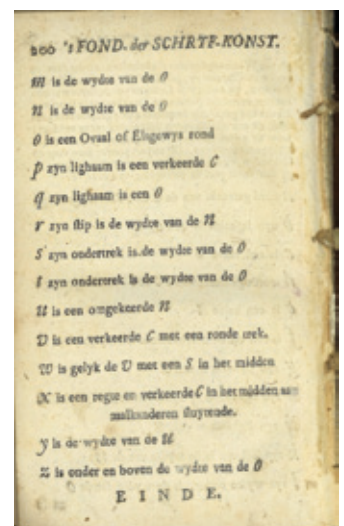 200 's FOND. der SCHRYF-KONST.
m is de wydte van de O
n is de wydte van de O
O is een Ovaal of Eigewys rond
p zyn lighaam is een verkeerde C
q zyn lighaam is een O
r zyn stip is de wydte van de N
S zyn ondertrek is de wydte van de O
t zyn ondertrek is de wydte van de O
u is een omgekeerde N
V is een verkeerde C met een ronde trek.
W is gelyk de V met een S in het midden
X is een regte en verkeerde C in het midden aan
malkanderen sluytende.
y is de wydte van de U
Z is onder en boven de wydte van de O
EINDE.